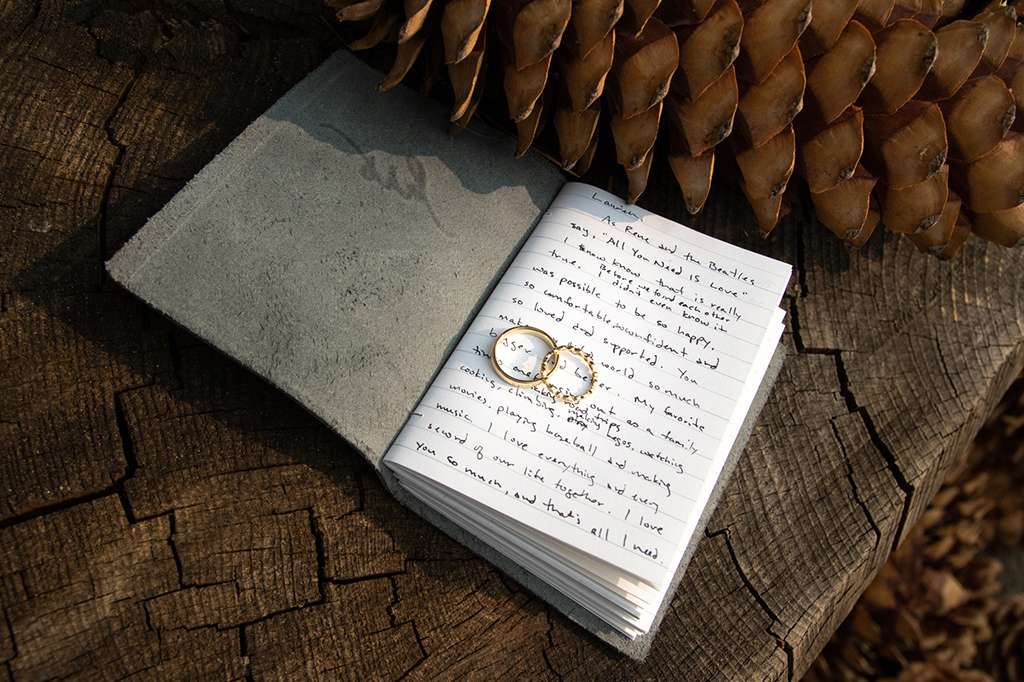 Lauren,
As Rene and the Beatles
say, "All You Need Is Love"
I know know that is really
true. Before we found each other
I didn't even know it
was possible to be so happy,
so comfortable, so confident and
so loved and supported. You
make world so much
bigger and better. My favorite
times are out as a family
making trips,
cookies, climbing, making legos, watching
movies, playing baseball and making
music. I love everything and every
second of our life together. I love
you so much, and that's all I need.